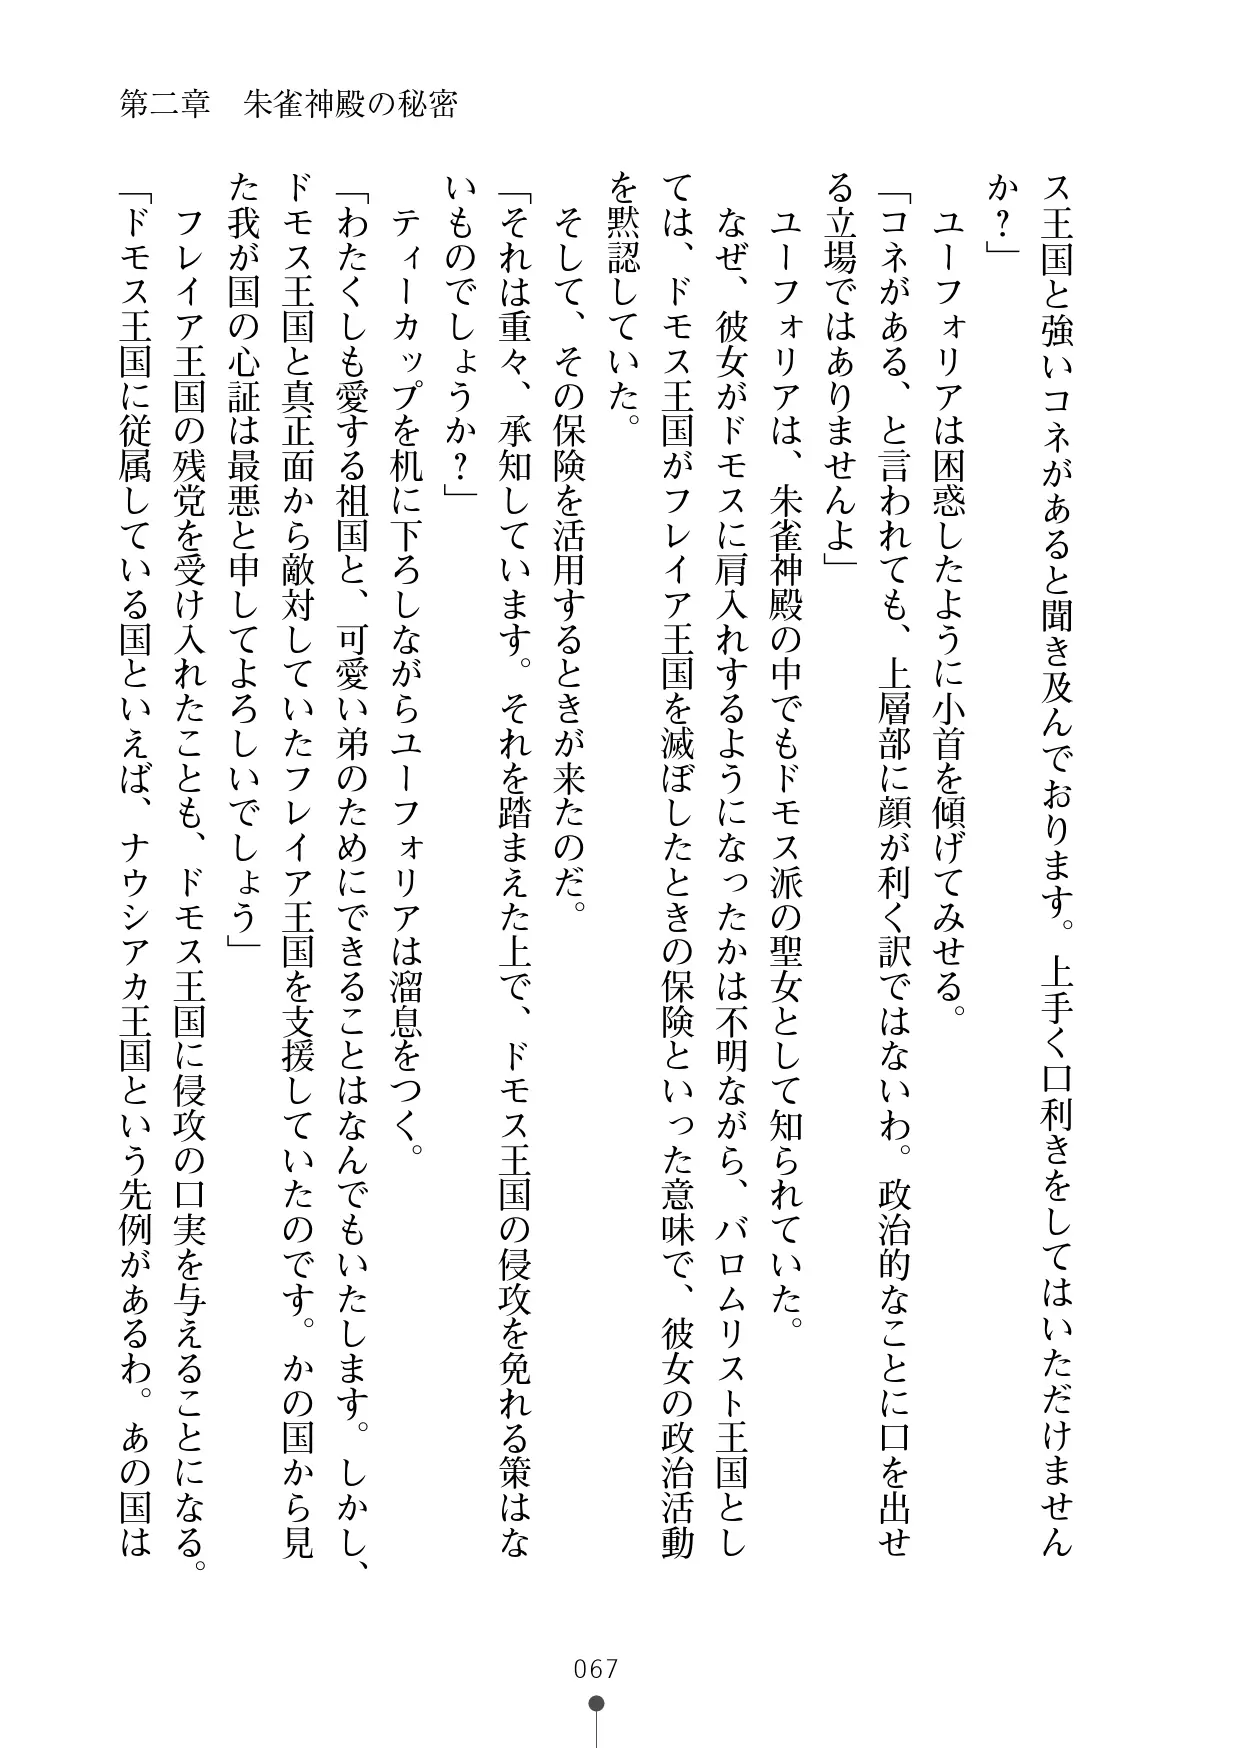 第二章　朱雀神殿の秘密
ス王国と強いコネがあると聞き及んでおります。上手く口利きをしてはいただけません
か？」
　ユーフォリアは困惑したように小首を傾げてみせる。
「コネがある、と言われても、上層部に顔が利く訳ではないわ。政治的なことに口を出せ
る立場ではありませんよ」
　ユーフォリアは、朱雀神殿の中でもドモス派の聖女として知られていた。
　なぜ、彼女がドモスに肩入れするようになったかは不明ながら、バロムリスト王国とし
ては、ドモス王国がフレイア王国を滅ぼしたときの保険といった意味で、彼女の政治活動
を黙認していた。
　そして、その保険を活用するときが来たのだ。
「それは重々、承知しています。それを踏まえた上で、ドモス王国の侵攻を免れる策はな
いものでしょうか？」
　ティーカップを机に下ろしながらユーフォリアは溜息をつく。
「わたくしも愛する祖国と、可愛い弟のためにできることはなんでもいたします。しかし、
ドモス王国と真正面から敵対していたフレイア王国を支援していたのです。かの国から見
た我が国の心証は最悪と申してよろしいでしょう」
　フレイア王国の残党を受け入れたことも、ドモス王国に侵攻の口実を与えることになる。
「ドモス王国に従属している国といえば、ナウシアカ王国という先例があるわ。あの国は
067